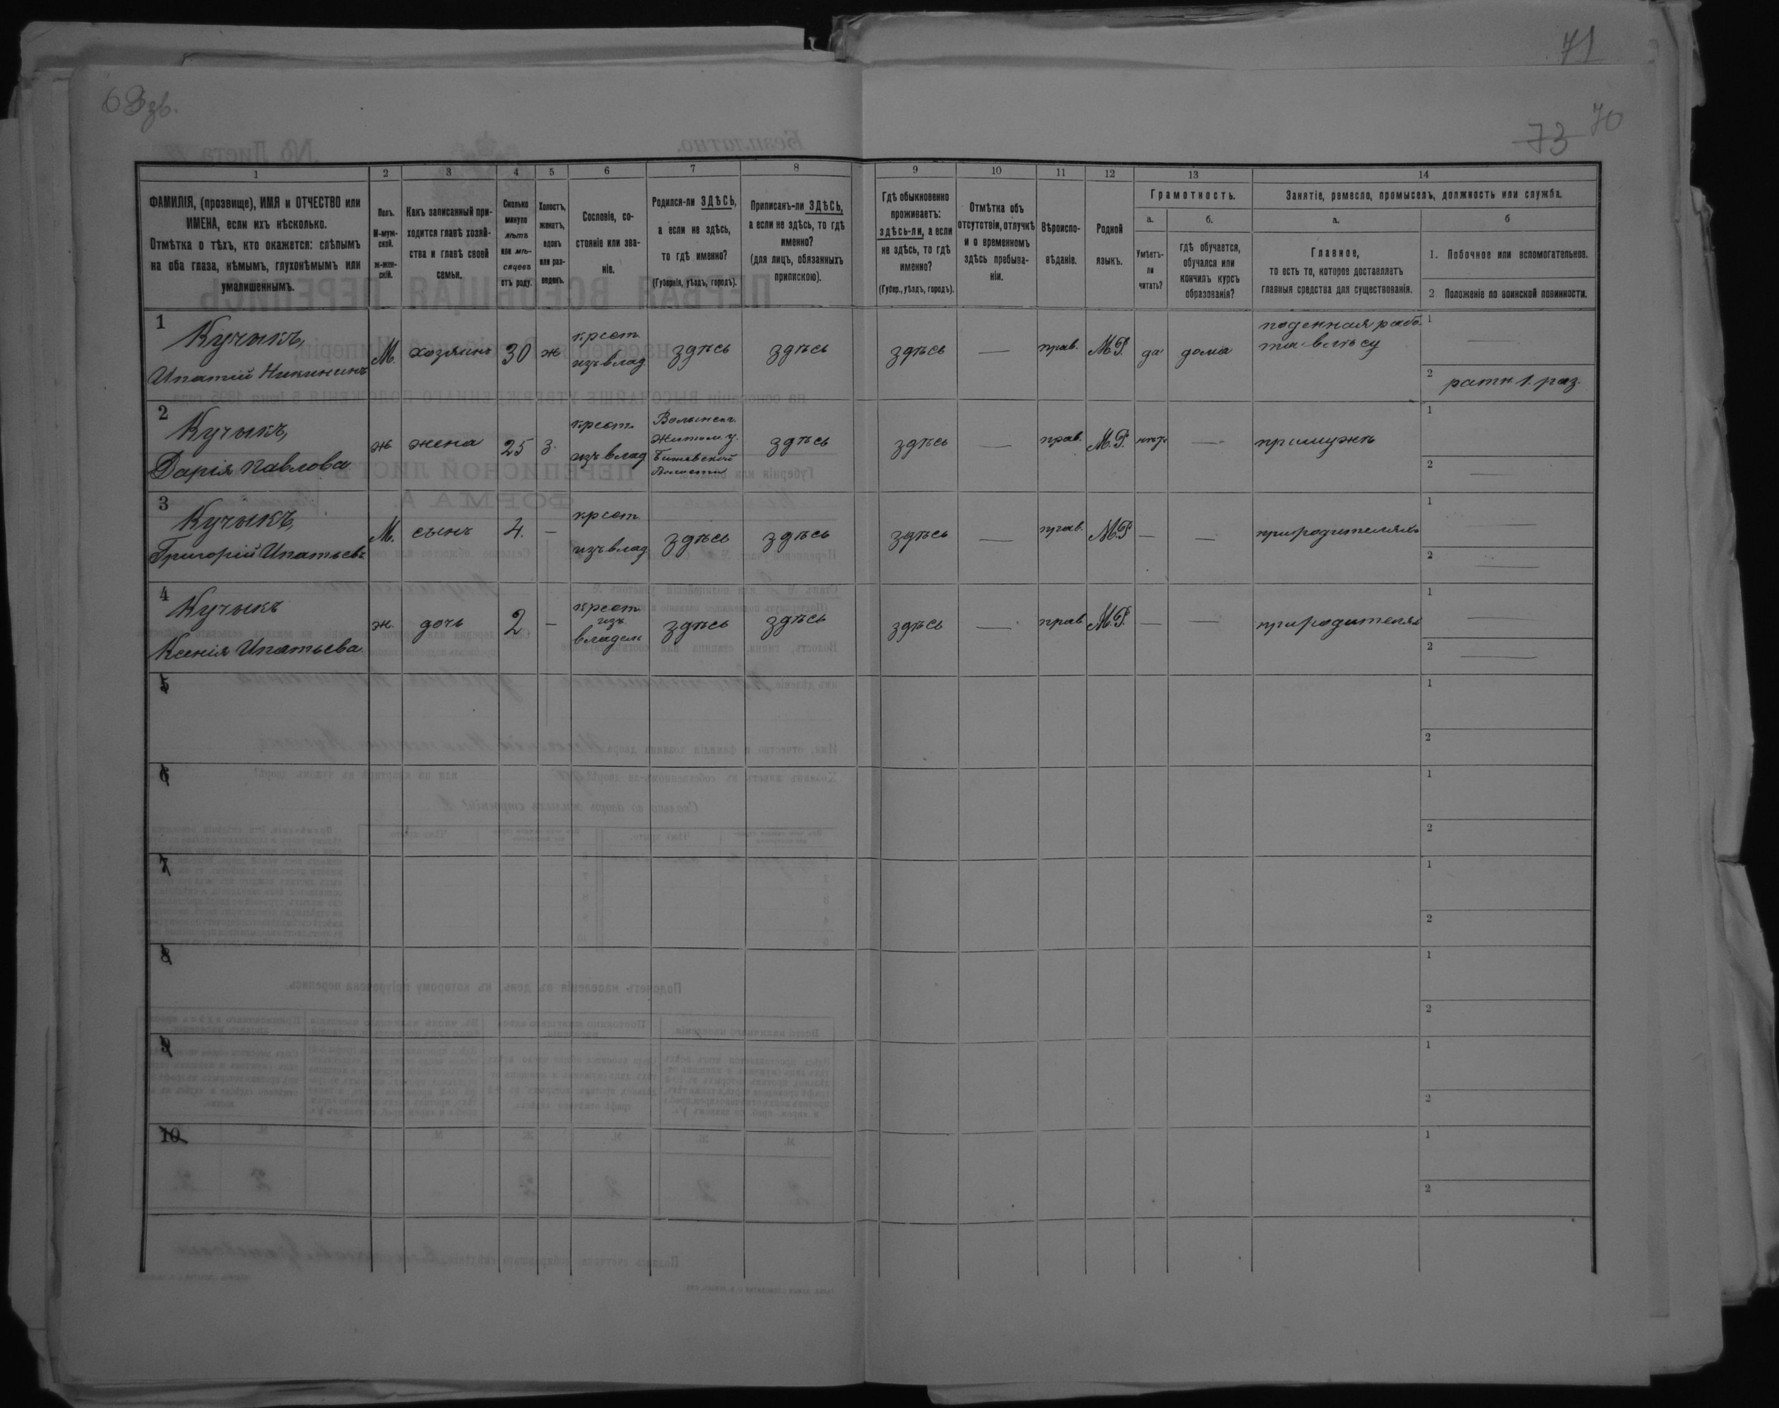 71
70
73
1
2
3
4
5
6
7
8
9
10
11
12
13
14
ФАМИЛІЯ, (прозвище), ИМЯ и ОТЧЕСТВО или
ИМЕНА, если ихъ нѣсколько.
Отмѣтка о тѣхъ, кто окажется: слѣпымъ
на оба глаза, нѣмымъ, глухонѣмымъ или
умалишеннымъ.
Полъ.
М-муж-
ской.
ж-жен-
скій.
Какъ записанный при-
ходится главѣ хозяй-
ства и главѣ своей
семьи.
Сколько
минуло
лѣтъ
или мѣ-
сяцевъ
отъ роду.
Холостъ,
женатъ,
вдовъ
или раз-
веденъ.
Сословіе, со-
стояніе или зва-
ніе.
Родился-ли ЗДѢСЬ,
а если не здѣсь,
то гдѣ именно?
(Губернія, уѣздъ, городъ).
Приписанъ-ли ЗДѢСЬ,
а если не здѣсь, то гдѣ
именно?
(для лицъ, обязанныхъ
припискою).
Гдѣ обыкновенно
проживаетъ:
здѣсь-ли, а если
не здѣсь, то гдѣ
именно?
(Губер., уѣздъ, городъ).
Отмѣтка объ
отсутствіи, отлучкѣ
и о временномъ
здѣсь пребыва-
ніи.
Вѣроиспо-
вѣданіе.
Родной
языкъ.
Грамотность.
а.
Умѣетъ-
ли
читать?
б.
гдѣ обучается,
обучался или
кончилъ курсъ
образованія?
Занятіе, ремесло, промыселъ, должность или служба.
а.
Главное,
то есть то, которое доставляетъ
главныя средства для существованія.
б
1. Побочное или вспомогательное.
2 Положеніе по воинской повинности.
1
Кучыкъ,
Ипатій Никининъ
М. хозяинъ 30 ж крест. изъ влад. здѣсь здѣсь здѣсь — прав. М.Р. да дома
поденная рабо-
та въ лѣсу
1 —
2 ратн 1. раз.
2
Кучыкъ,
Дарія Павлова
ж жена 25 з. крест. изъ влад
Волынск.
Житом. у.
здѣсь здѣсь — прав. М.Р. нѣтъ — при мужѣ
1
2
3
Кучыкъ,
Григорій Ипатьевъ
М. сынъ 4. — крест. изъ влад здѣсь здѣсь здѣсь — прав. М.Р — — при родителяхъ
1 —
2 —
4
Кучыкъ
Ксенія Ипатьева
ж. дочь 2 — крест. изъ владѣл здѣсь здѣсь здѣсь — прав М.Р. — — при родителяхъ
1 —
2 —
5
1
2
6
1
2
7
1
2
8
1
2
9
1
2
10
1
2